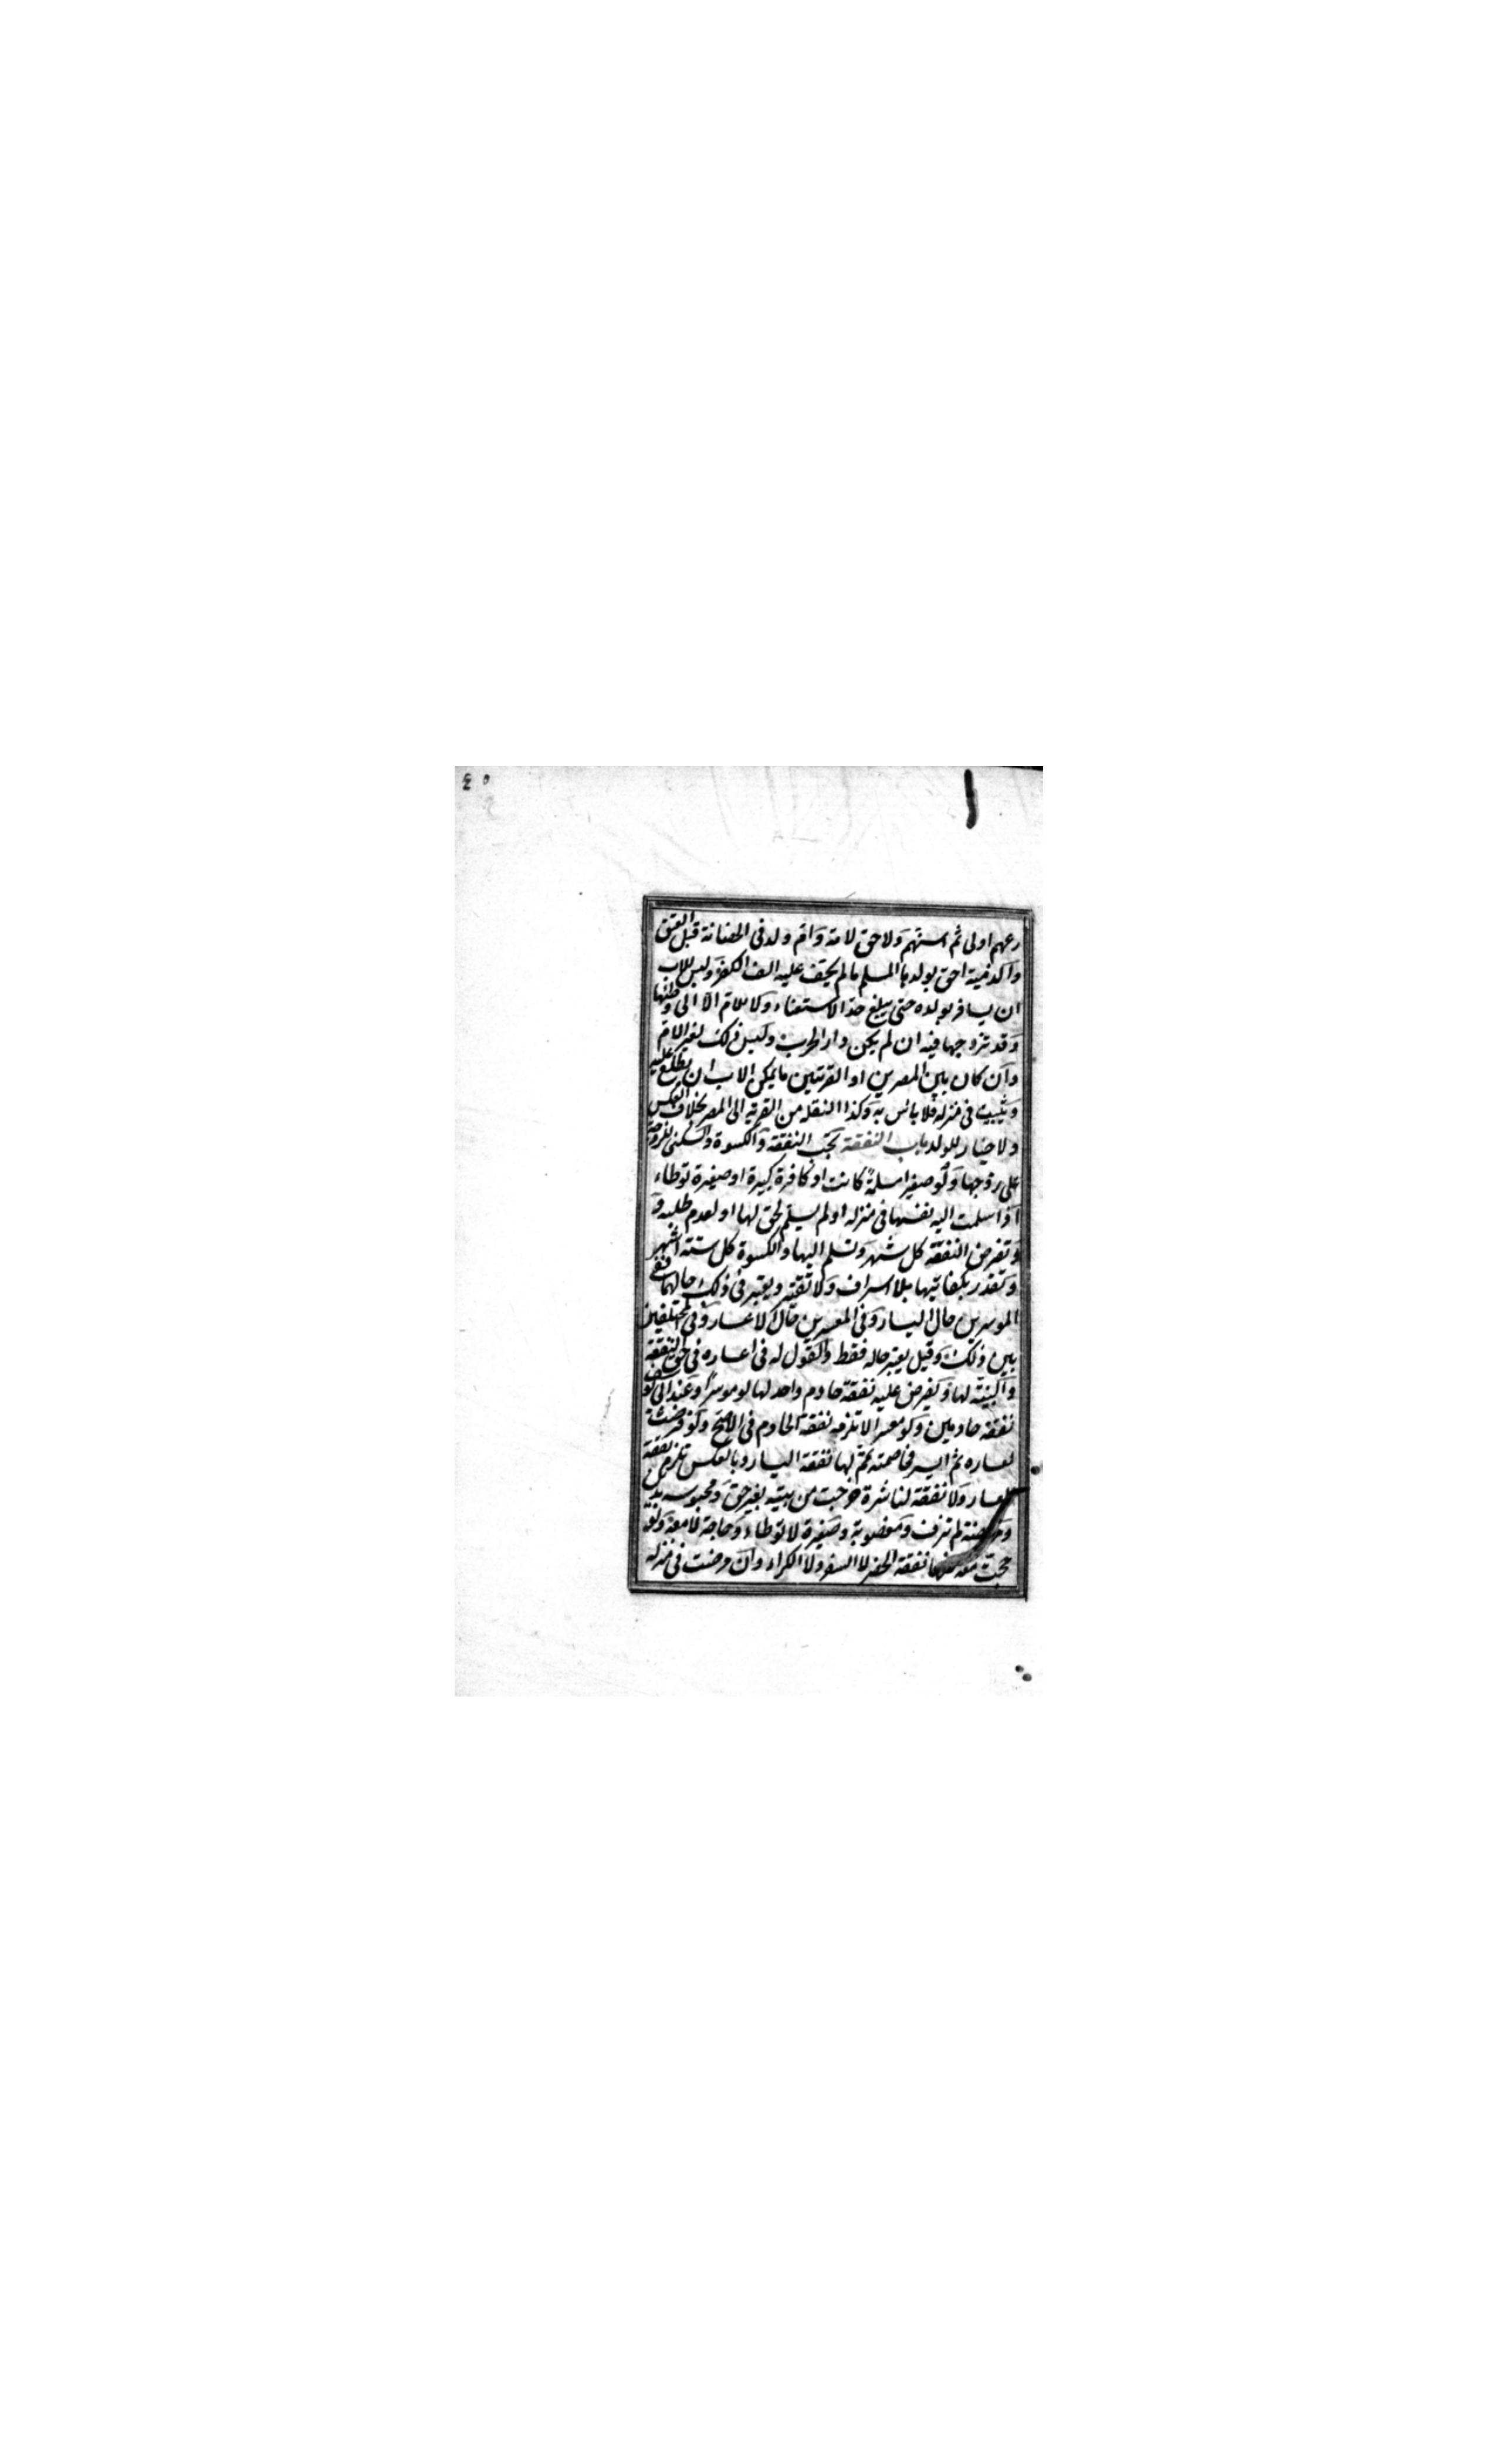 ٤٥
رعهم اولى ثم اسنهم ولا حق لامة وام ولد فى الحضانة قبل العتق
والذمية احق بولدها المسلم ما لم يخف عليه الف الكفر وليس للاب
ان يسافر بولده حتى يبلغ حد الاستغناء ولا للام الا الى وطنها
وقد تزوجها فيه ان لم يكن دار الحرب وليس ذلك لغير الام
وان كان بين المصرين او القريتين ما يمكن الاب ان يطلع عليه
ويبيت فى منزله فلا بأس به وكذا النقلة من القرية الى المصر بخلاف العكس
ولا خيار للولد باب النفقة تجب النفقة والكسوة والسكنى للزوجة
على زوجها ولو صغيرا مسلمة كانت او كافرة كبيرة او صغيرة توطاء
اذا سلمت اليه نفسها فى منزله او لم يسلم لحق لها او لعدم طلبه و
وتفرض النفقة كل شهر وتسلم اليها والكسوة كل ستة اشهر
وتقدر بكفايتها بلا اسراف ولا تقتير ويعتبر فى ذلك حالهما ففى
الموسرين حال اليسار وفى المعسرين حال الاعسار وفى المختلفين
بين ذلك وقيل يعتبر حاله فقط والقول له فى اعساره فى حق النفقة
والبينة لها ويفرض عليه نفقة خادم واحد لها لو موسرا وعند ابى يوسف
نفقة خادمين ولو معسرا لا تلزمه نفقة الخادم فى الاصح ولو فرضت
لعساره ثم ايسر فخاصمته تمم لها نفقة اليسار وبالعكس تلزم نفقة
العسار ولا نفقة لناشزة خرجت من بيته بغير حق ومحبوسة بدين
ومريضة لم تزف ومغصوبة وصغيرة لا توطاء وحاجة لا معه ولو
حجت معه فلها نفقة الحضر لا السفر ولا الكراء وان مرضت فى منزله